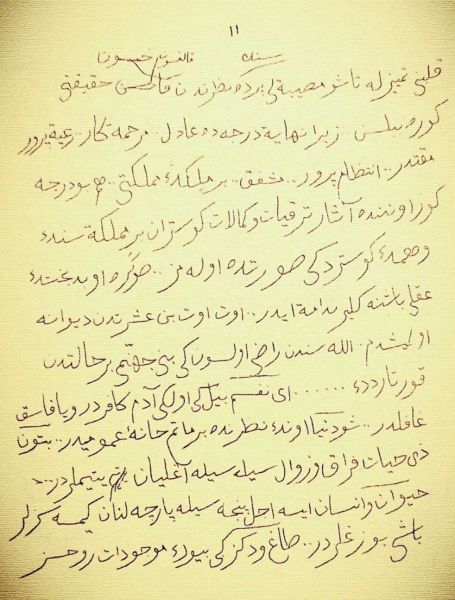 ١١
سنڭ قالقسون
قلبڭی تمیزله تا شو مصیبتلی پرده نظرڭدن قالقسین حقیقتی
كوره بیلسن. زیرا نهایة درجه ده عادل.. مرحمه تكار.. رعیة پرور
مقتدر.. انتظام پرور.. مشفق.. بر ملكڭ مملكتی.. هم بو درجه
كوز اوڭنده آثار ترقیات وكمالات كوستران بر مملكة سنڭ
وهمڭ كوستردكی صورتده اوله مز.. صوڭره او بدبختڭ
عقلی باشنه كلیر ندامة ایدر.. اوت اوت بن عشرتدن دیوانه
اولمشدم. الله سندن راضی اولسون كی بنی جهنّمی بر حالتدن
قورتاردڭ...... ای نفسم بیل كی اولكی آدم كافردر ویا فاسق
غافلدر.. شو دنیا اونڭ نظرنده بر ماتم خانۀ عمومیدر.. بتون
ذی حیات فراق وزوال سیله سیله آغلیان یتیملردر..
حیوان وانسان ایسه اجل پنجه سیله پارچه لنان كیمسه سزلر
باشی بوزغلردر.. طاغ ودكز كی بیوك موجودات روحسز